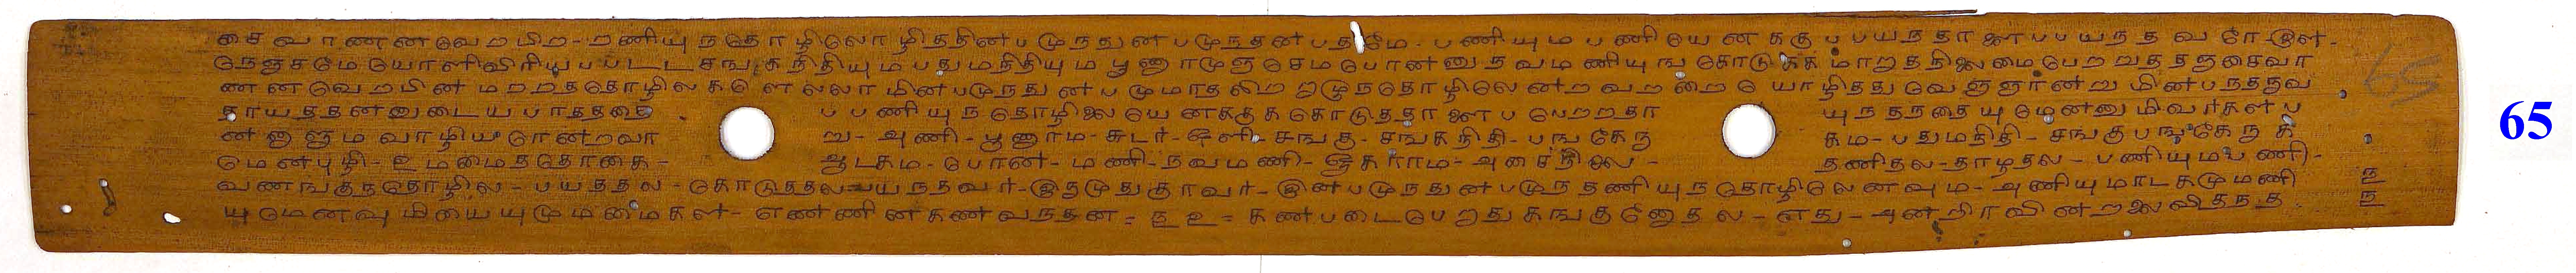 சைவாணனவெறபிற - றணியுந தொழிலொழிததின்பமுந துன்பமுந தன்பதமே - பணியும பணியேயெனககுப பயந்தா ளபபயந்தவரே - இள -
நெஞ்சமே யொளிவிரியபபடட சஙகநிதியும பதுமநிதியும பூணாமுஞ செமபொன்னு நவமணியுங கொடுகக மாறததிலமைபெறற தஞசைவா
ணன்வெறபின் மறறததொழிலகளெலலாமின்பமுந துன்பமுமாதலிறறுமுந தொழிலென்றவறறை யொழிதது வெஞஞான்று மின்பநதருவ
தாயததன்னுடைய பாதததை பபணியுந தொழிலையெனககுக கொடுததாளாபபெறறதா யுநதநதையுமென்னுமிவர்கள் ப
ன்னுஞம வாழிய ரொன்றவா று - அணி - பூணாம - சுடர் - ஒளி - சஙகு - சஙகநிதி - பஙகேரு கம - பதுமநிதி - சஙகுபஙகேருக
மென்புழி - உமமைததொகை - ஆடகம - பொன் - மணி - நவமணி - இகராம - அசைநிலை - தணிதல - தாழதல - பணியுமபணி -
வணஙகுநதொழில - பயததல - கொடுததல - பயநதவர் - இருமுதுகுரவர் - இன்பமுந துன்பமுந தணியுந தொழிலெனவும - அணியுமாடகமுமணி
யுமெனவுமியையுமுமமைகள் - எண்ணின்கண் வநதன = உஉ = கண்படைபெறறு கஙகுனோதல - எது - அன்றிரவின்றலைவிதநத